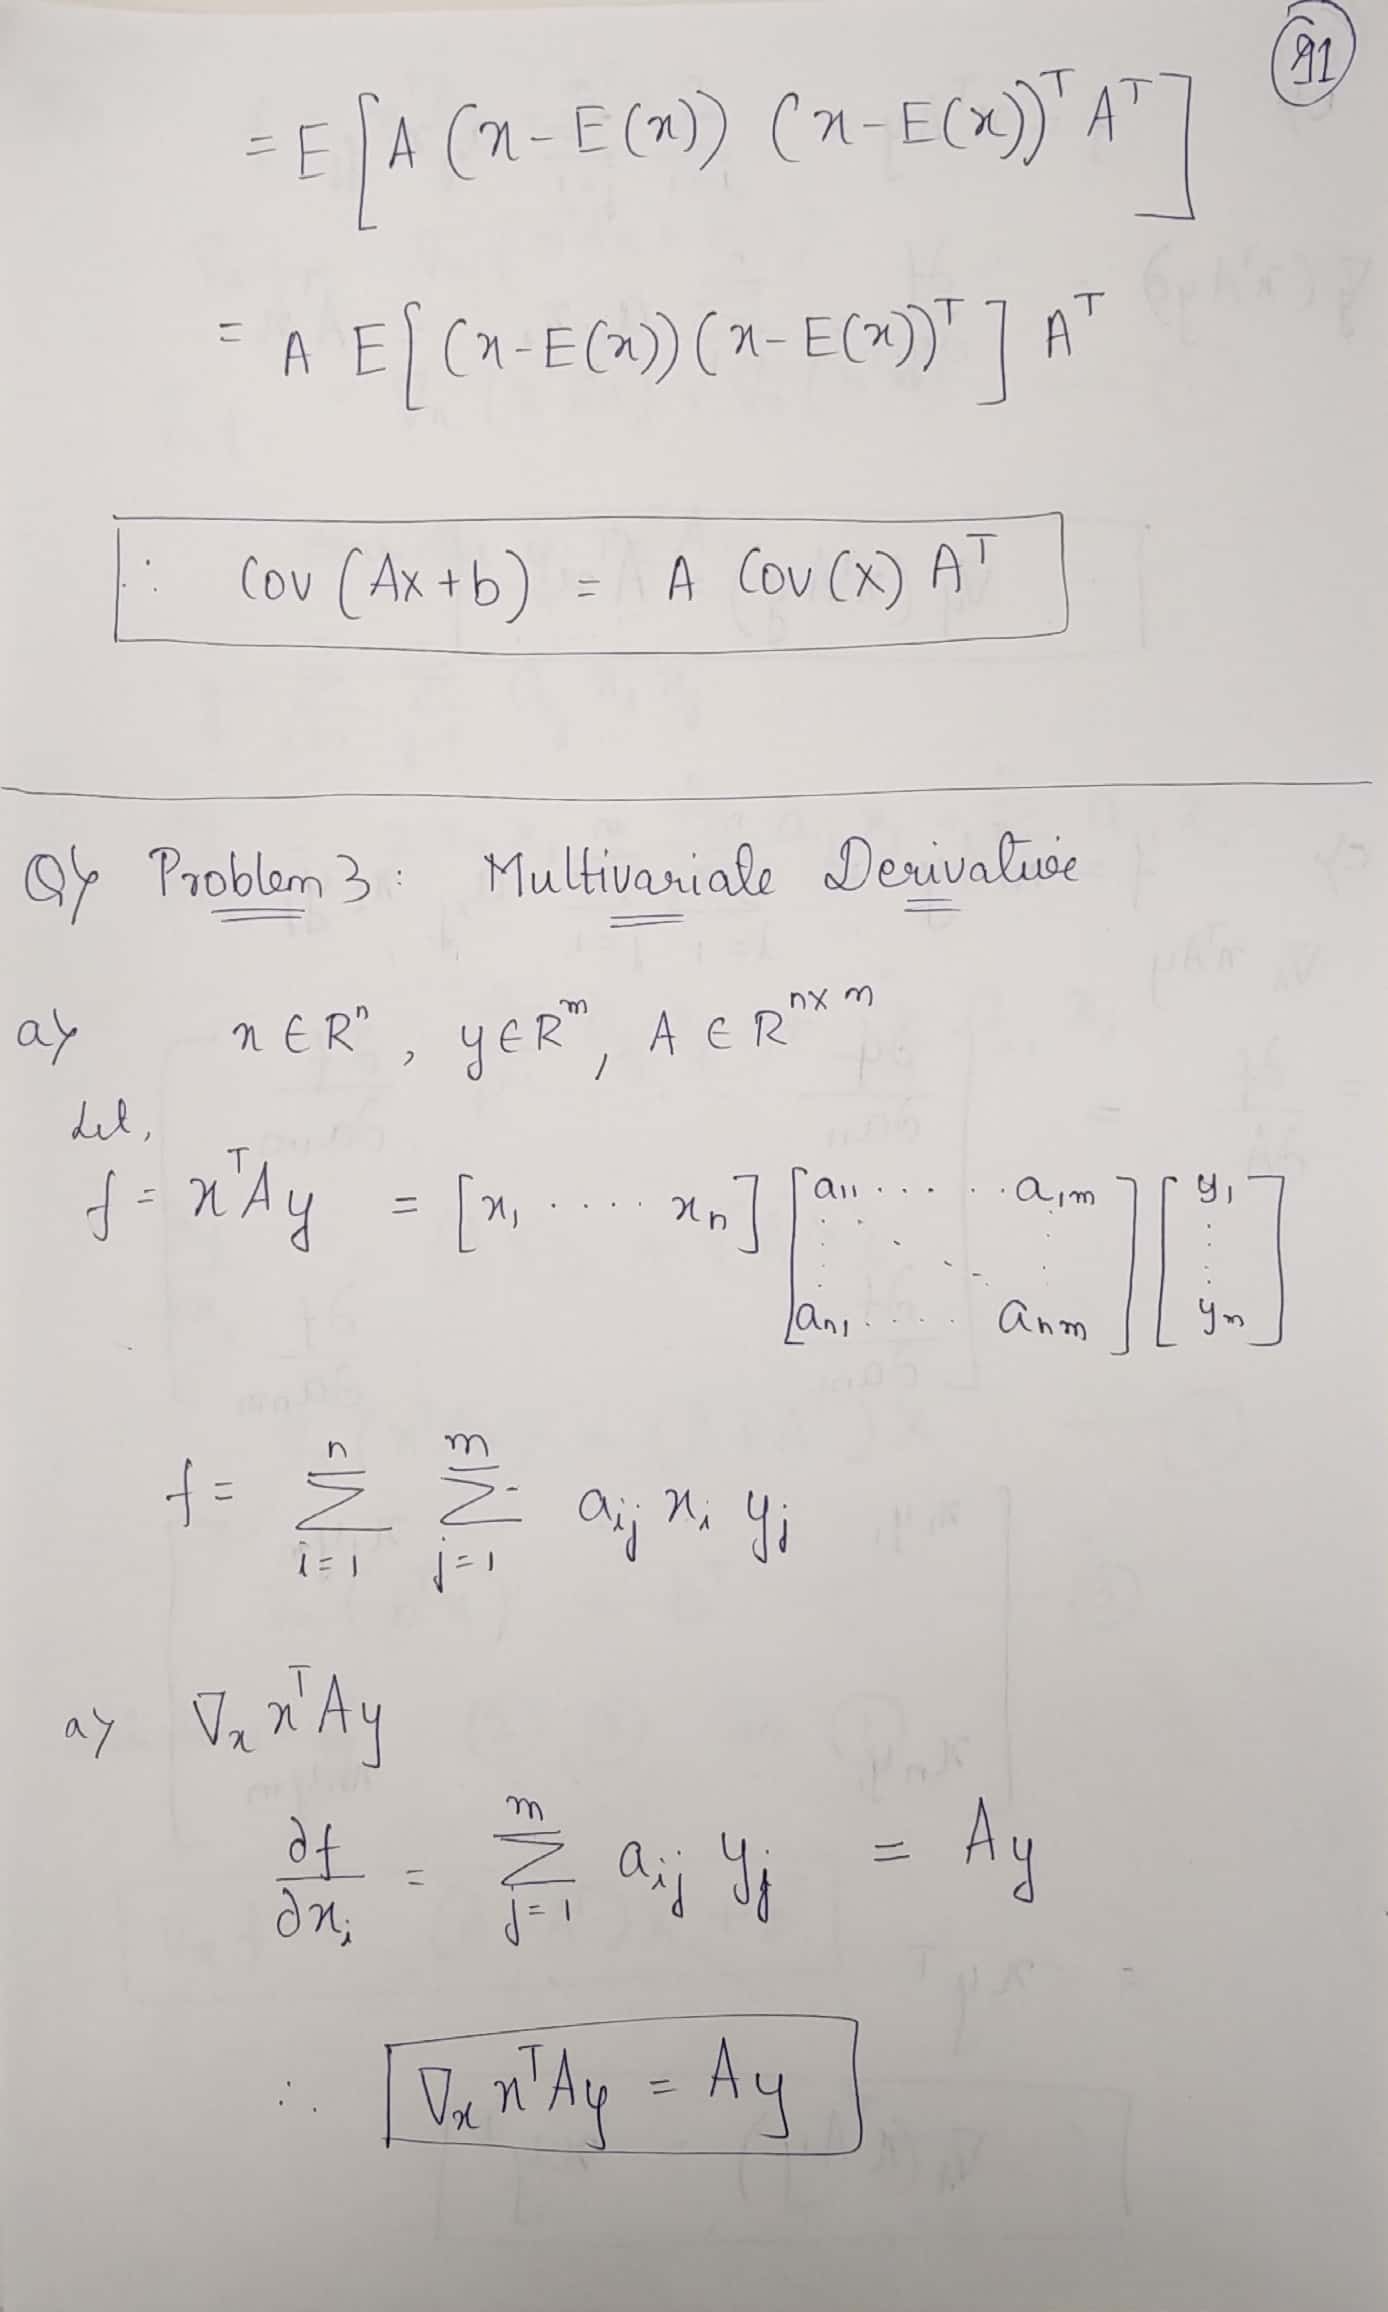 91
= E [A (x - E(x)) (x - E(x))ᵀ Aᵀ]
= A E[(x - E(x)) (x - E(x))ᵀ] Aᵀ
∴ Cov (Ax + b) = A Cov (X) Aᵀ
Q> Problem 3 : Multivariate Derivative
a> x ∈ Rⁿ, y ∈ Rᵐ, A ∈ Rⁿˣᵐ
Let,
f = xᵀAy = [x₁ .... xₙ] [a₁₁ ..... a₁ₘ ⋮ ⋱ ⋮ aₙ₁ .... aₙₘ] [y₁ ⋮ yₘ]
f = Σᵢ₌₁ⁿ Σⱼ₌₁ᵐ aᵢⱼ xᵢ yⱼ
a> ∇ₓ xᵀAy
∂f/∂xᵢ = Σⱼ₌₁ᵐ aᵢⱼ yⱼ = Ay
∴ ∇ₓ xᵀAy = Ay